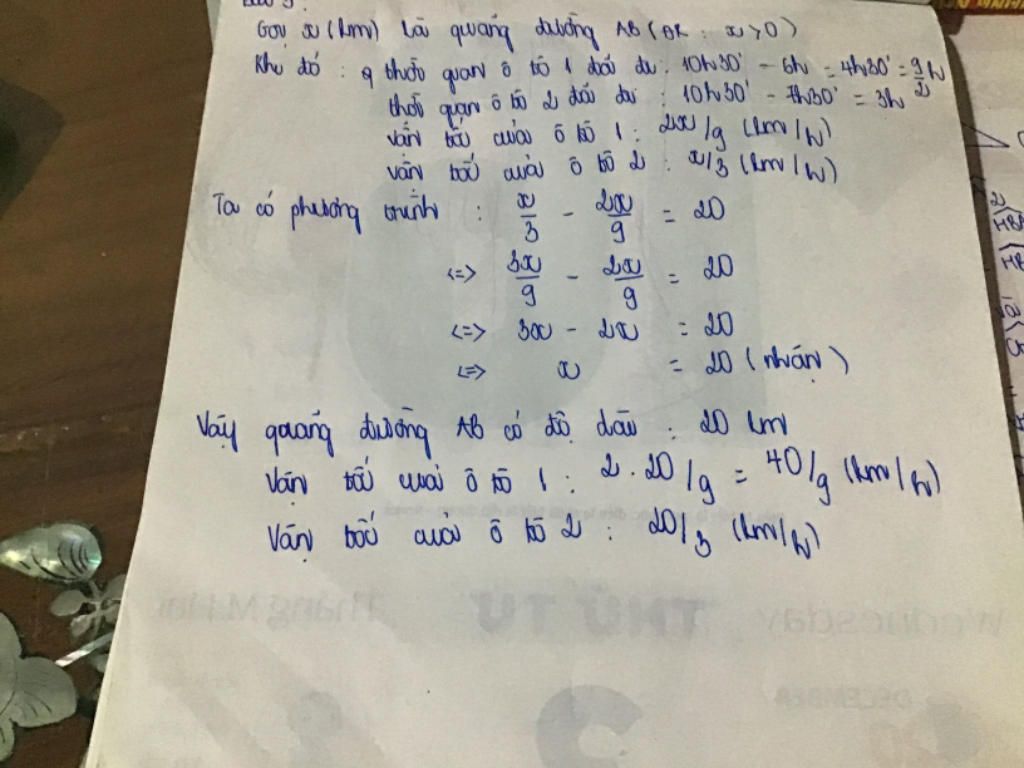 Gọi x (km) là quãng đường AB (ĐK : x > 0)
Khi đó : thời gian ô tô 1 đã đi : 10h30' - 6h = 4h30' = 9/2 h
thời gian ô tô 2 đã đi : 10h30' - 7h30' = 3h
vận tốc của ô tô 1 : 2x/9 (km/h)
vận tốc của ô tô 2 : x/3 (km/h)
Ta có phương trình : x/3 - 2x/9 = 20
<=> 3x/9 - 2x/9 = 20
<=> 3x - 2x = 20
<=> x = 20 (nhận)
Vậy quãng đường AB có độ dài : 20 km
Vận tốc của ô tô 1 : 2.20/9 = 40/9 (km/h)
Vận tốc của ô tô 2 : 20/3 (km/h)
THỨ TƯ
Wednesday
DECEMBER